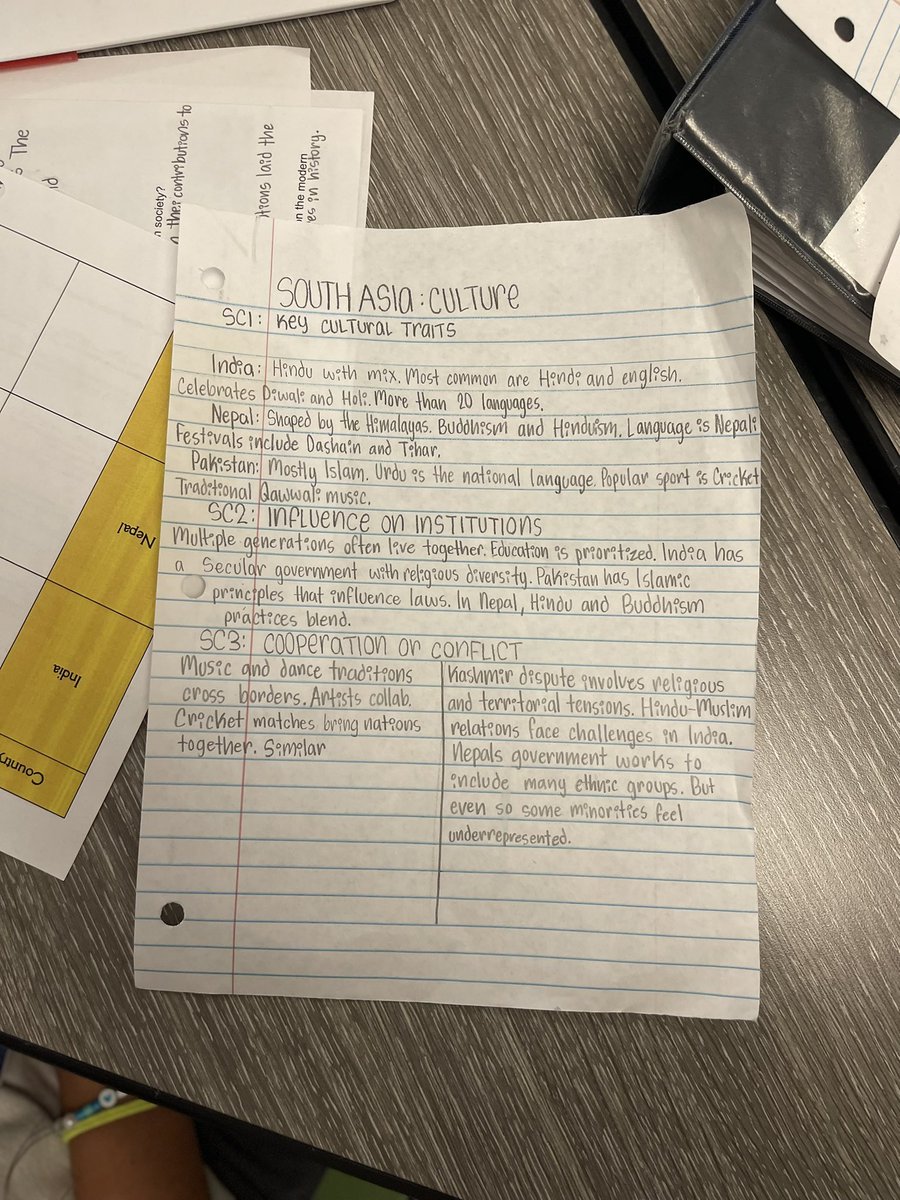 The
n society?
n their contributions to
tions laid the
on the modern
es in history.
SOUTH ASIA: CULTURE
SC1: KEY CULTURAL TRAITS
India: Hindu with mix. Most common are Hindi and english.
Celebrates Diwali and Holi. More than 20 languages.
Nepal: Shaped by the Himalayas. Buddhism and Hinduism. Language is Nepali
Festivals include Dashain and Tihar.
Pakistan: Mostly Islam. Urdu is the national language. Popular sport is Cricket
Traditional Qawwali music.
SC2: INFLUENCE ON INSTITUTIONS
Multiple generations often live together. Education is prioritized. India has
a Secular government with religious diversity. Pakistan has Islamic
principles that influence laws. In Nepal, Hindu and Buddhism
practices blend.
SC3: COOPERATION OR CONFLICT
Music and dance traditions
cross borders. Artists collab.
Cricket matches bring nations
together. Similar
Kashmir dispute involves religious
and territorial tensions. Hindu-Muslim
relations face challenges in India.
Nepals government works to
include many ethnic groups. But
even so some minorities feel
underrepresented.
Nepal
India
Country